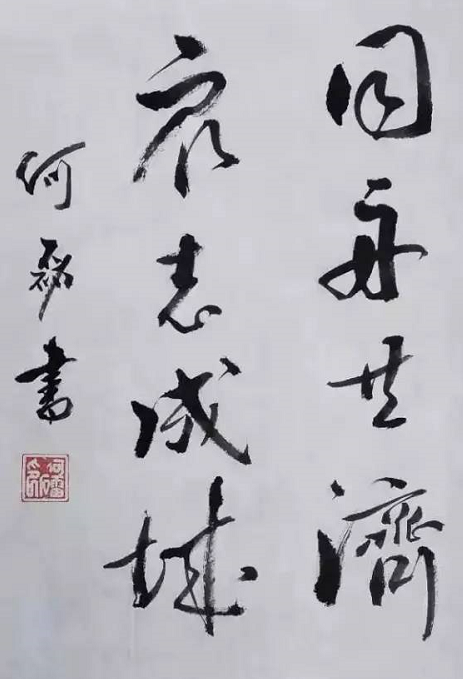 同舟共濟
衆志成城
何磊書